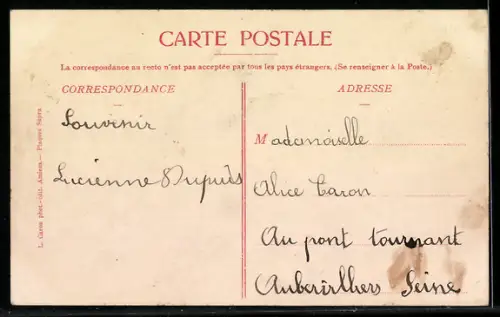 CARTE POSTALE
La correspondance au recto n'est pas acceptée par tous les pays étrangers. (Se renseigner à la Poste.)
CORRESPONDANCE
Souvenir
Lucienne Dupuis
ADRESSE
Mademoiselle
Alice Caron
Au pont tournant
Auberirlhers Seine
L. Caron phot.-édit. Amiens. — Plaques Supra